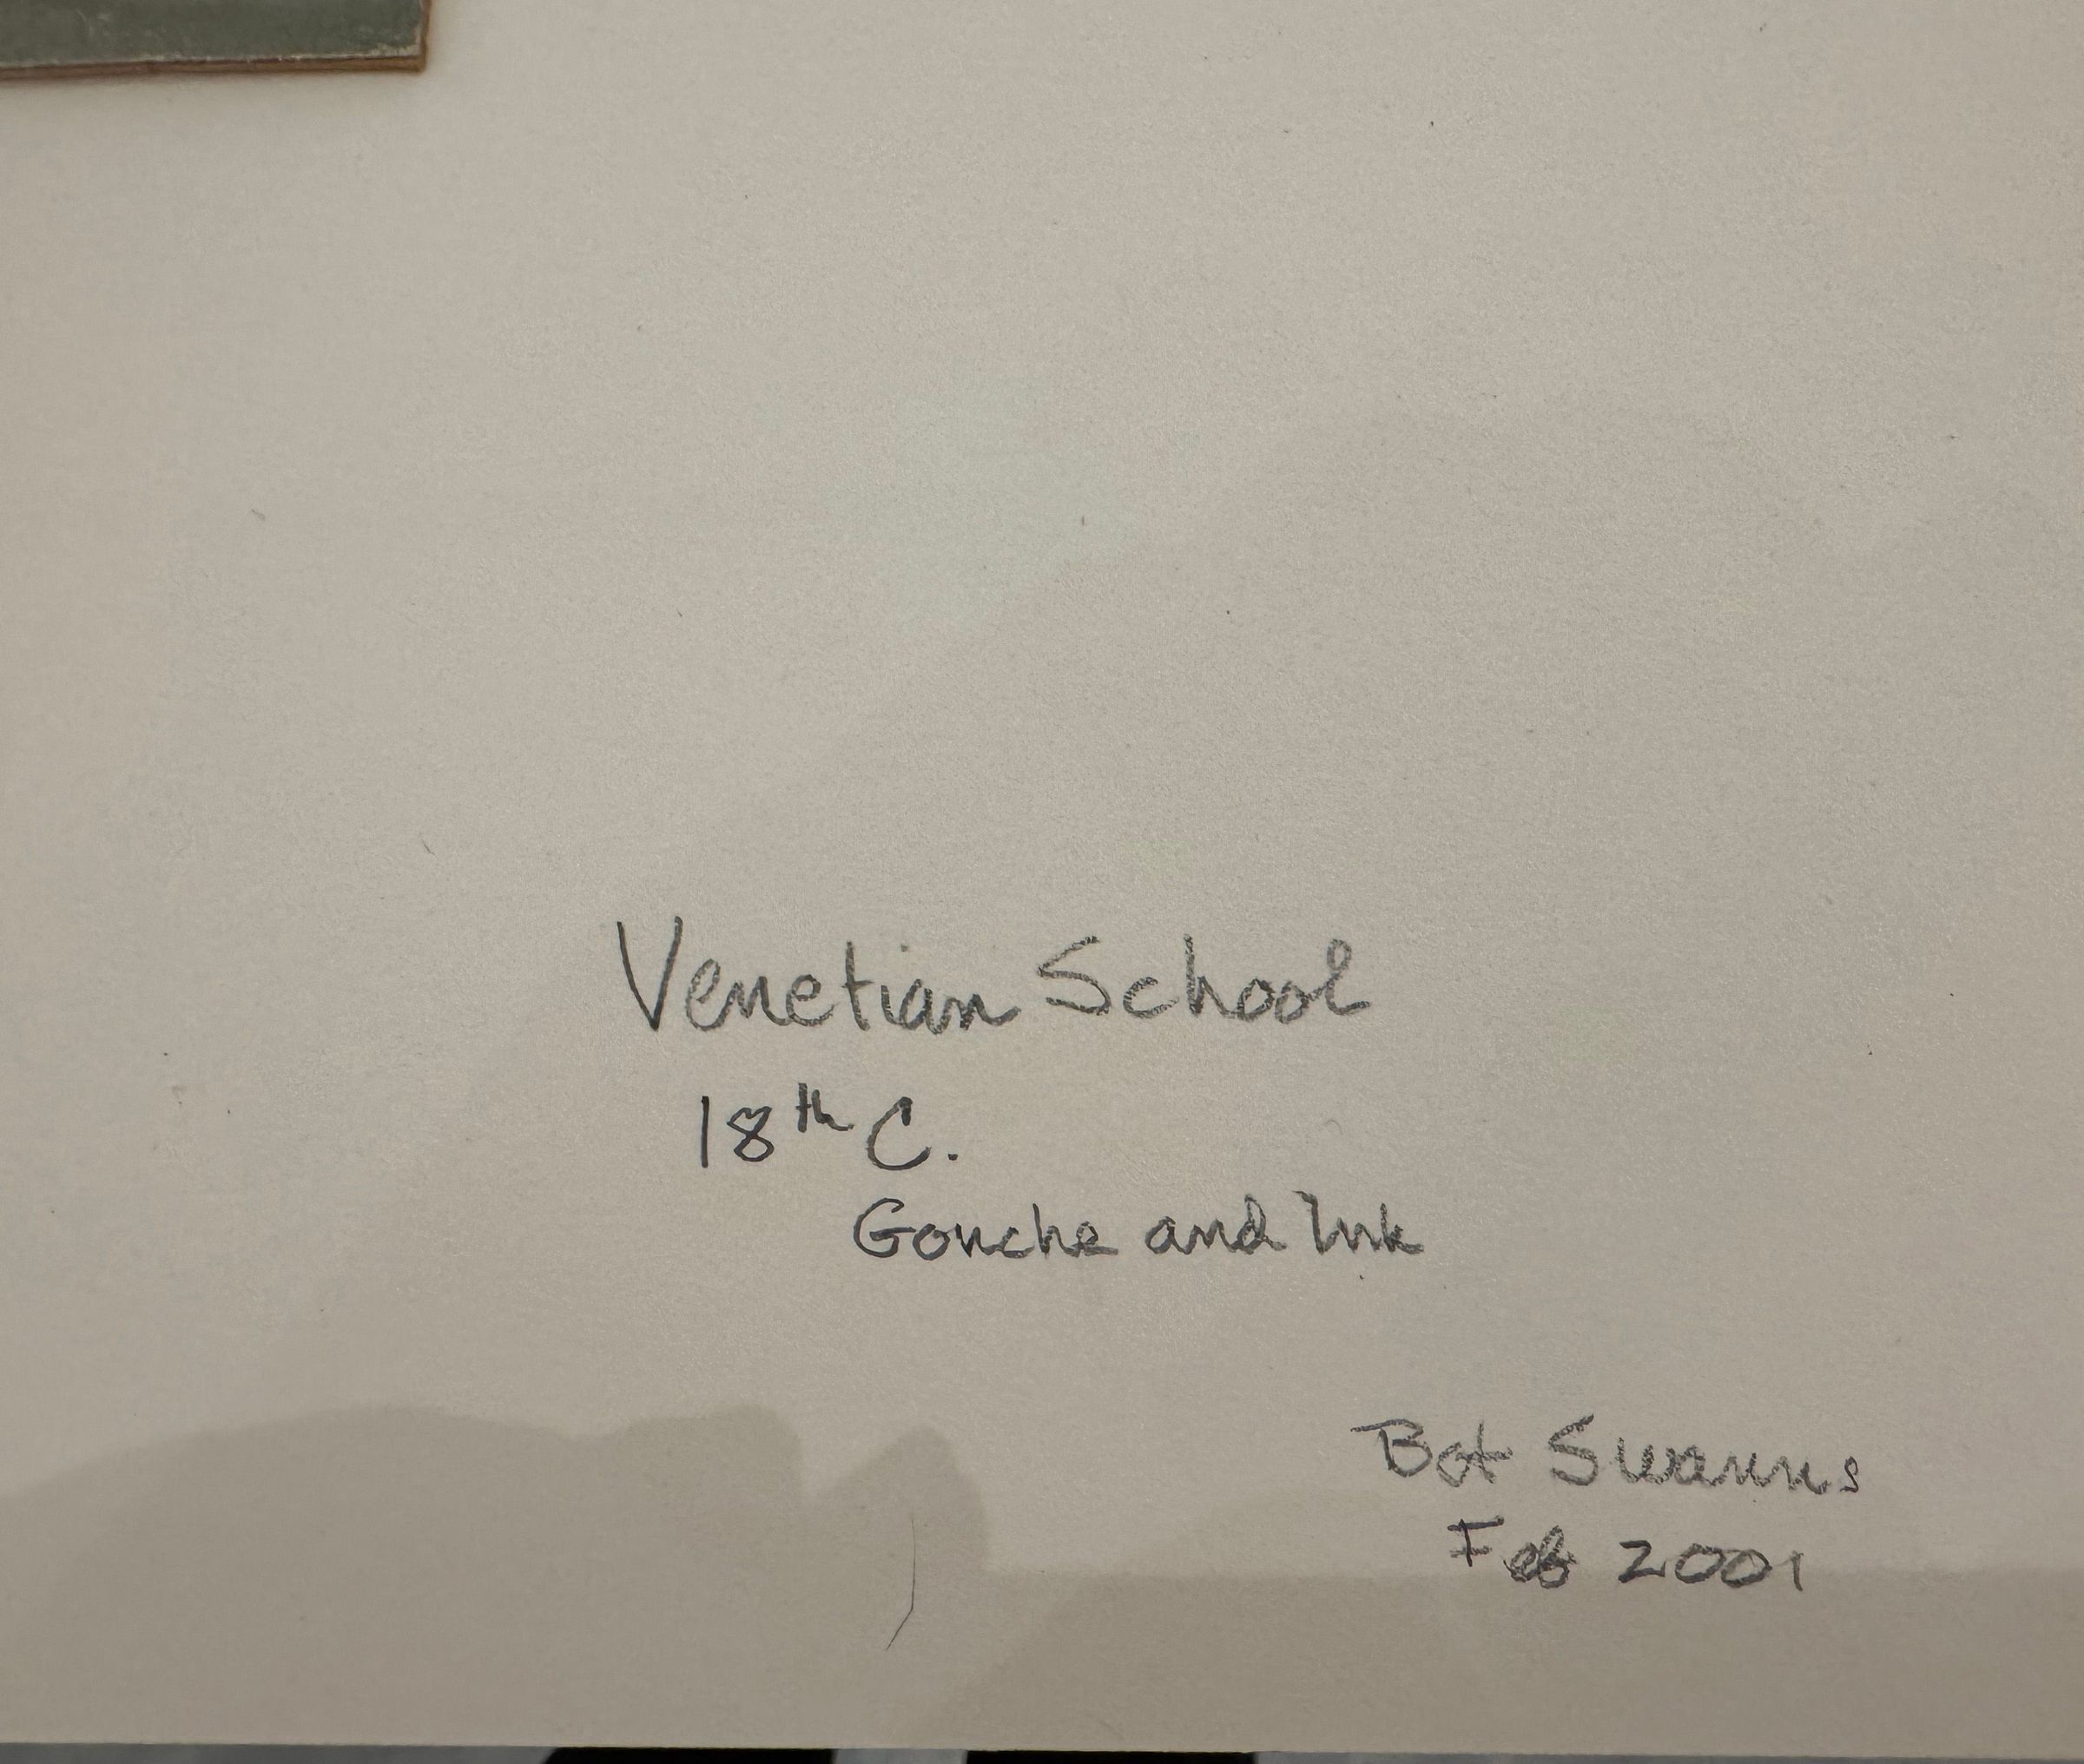 Venetian School
18th C.
Gouche and Ink
Bot Swanns
Feb 2001